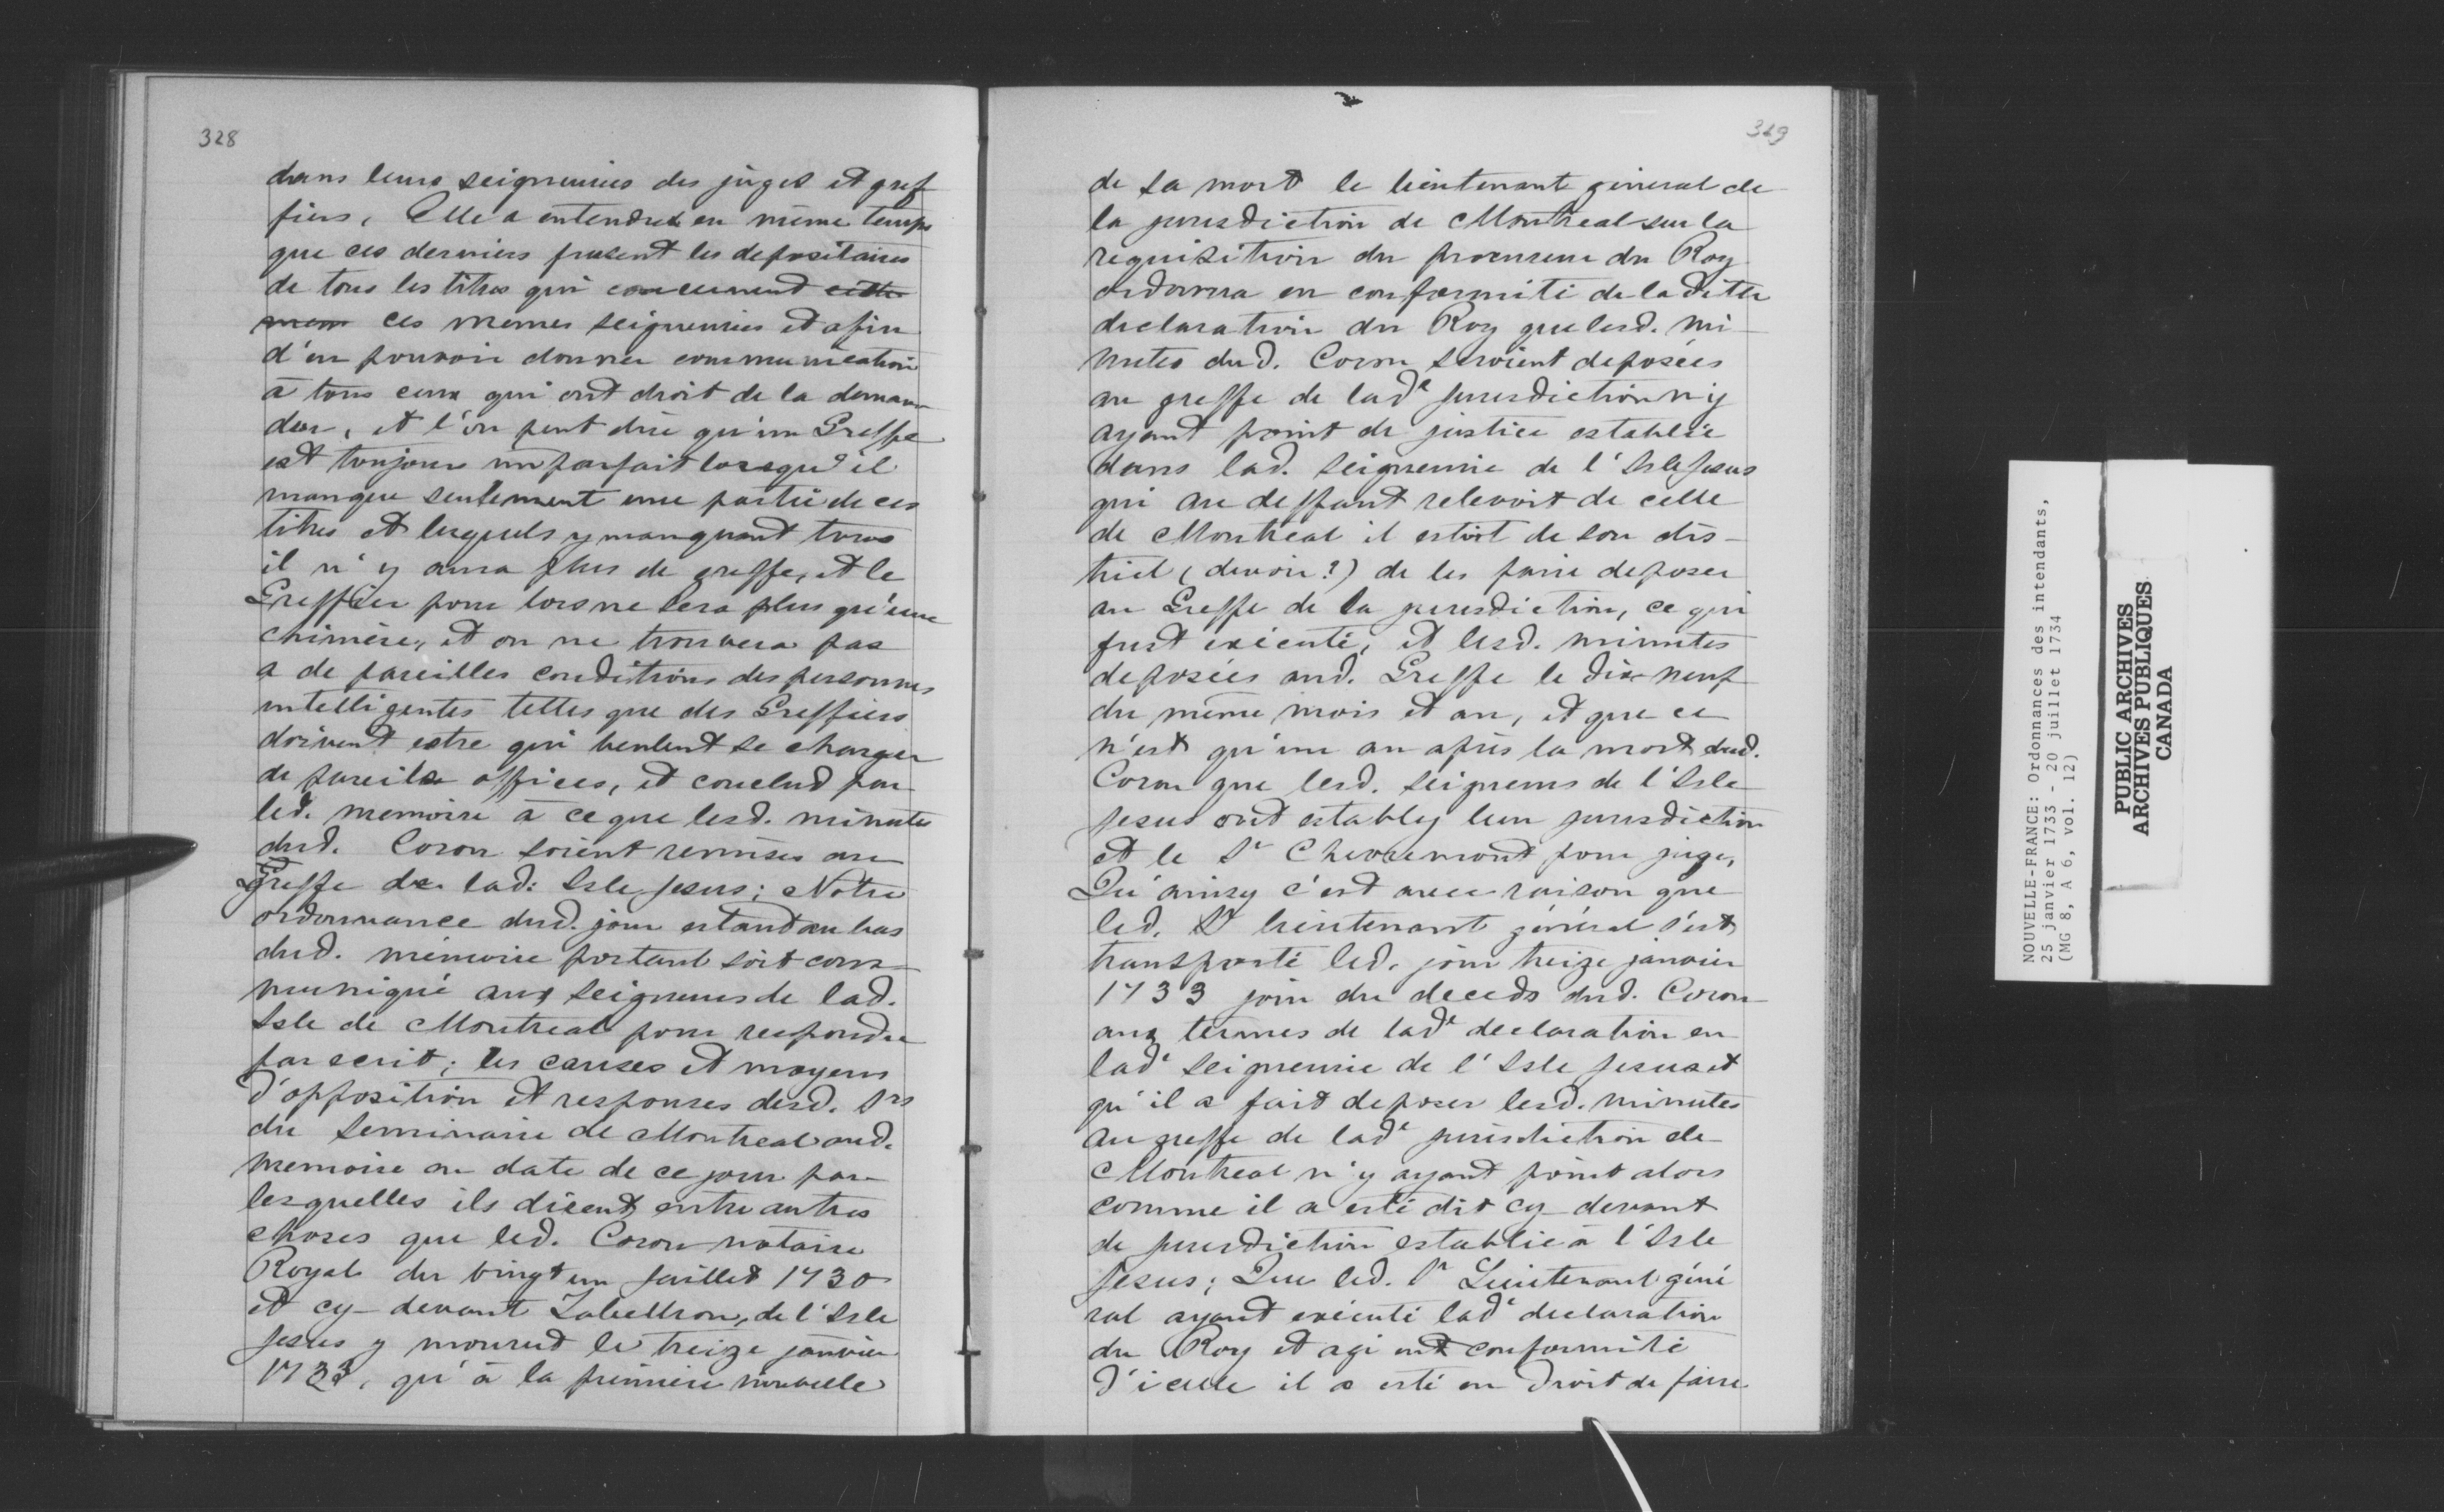 328
dans leurs seigneuries des juges et gref
fiers, Elle a entendu en même temps
que ces derniers fusent les depositaires
de tous les titres qui concernent cette
mem ces memes seigneuries et afin
d'en pouvoir donner communication
à tous ceux qui ont droit de la deman
der, et l'on peut dire qu'un Greffe
est toujours imparfait lorsqu'il
manque seulement une partie de ces
titres et lesquels y manquant tous
il n'y aura plus de greffe, et le
Greffier pour lors ne sera plus qu'une
chimère, et on ne trouvera pas
a de pareilles conditions des personnes
intelligentes telles que des Greffiers
doivent estre qui veulent se charger
de pareils offices, et conclud par
led. memoire à ce que lesd. minutes
dud. Coron soient remises au
Greffe de lad: Isle Jesus; Notre
ordonnance dud. jour estant au bas
dud. mémoire portant soit com
muniqué aux seigneurs de lad.
Isle de Montreal pour respondre
par ecrit; les causes et moyens
d'opposition et responses desd. Srs
du Seminaire de Montreal aud.
memoire en date de ce jour par
lesquelles ils disent entre autres
choses que led. Coron notaire
Royal du vingt un Juillet 1730
et cy-devant Tabellion, de l'Isle
Jesus y mourut le treize janvier
1733, qu'à la première nouvelle
329
de sa mort le lieutenant géneral de
la jurisdiction de Montreal sur la
requisition du procureur du Roy
ordonna en conformité de la ditte
declaration du Roy que lesd. mi-
nutes dud. Coron seroient deposées
au greffe de lade Jurisdiction n'y
ayant point de justice establie
dans lad. seigneurie de l'Isle Jesus
qui au deffaut relevoit de celle
de Montreal il estoit de son dis-
trict (devoir?) de les faire deposer
au Greffe de la jurisdiction, ce qui
fust exécuté, et lesd. minutes
deposées aud. Greffe le dix neuf
du même mois et an, et que ce
n'est qu'un an après la mort dud.
Coron que lesd. seigneurs de l'Isle
Jesus ont estably leur jurisdiction
et le Sr Chevremont pour juge,
Qu'ainsy c'est avec raison que
led. Sr lieutenant général s'est
transporté led. jour treize janvier
1733 jour du deceds dud. Coron
aux termes de lade declaration en
lade seigneurie de l'Isle Jesus et
qu'il a fait deposer lesd. minutes
au greffe de lade jurisdiction de
Montreal n'y ayant point alors
comme il a esté dit cy-devant
de jurisdiction establie à l'Isle
Jesus; Que led. Sr Lieutenant géné
ral ayant exécuté lade declaration
du Roy et agi en conformité
d'icelle il a esté en droit de faire
NOUVELLE-FRANCE: Ordonnances des intendants,
25 janvier 1733 - 20 juillet 1734
(MG 8, A 6, vol. 12)
PUBLIC ARCHIVES
ARCHIVES PUBLIQUES
CANADA